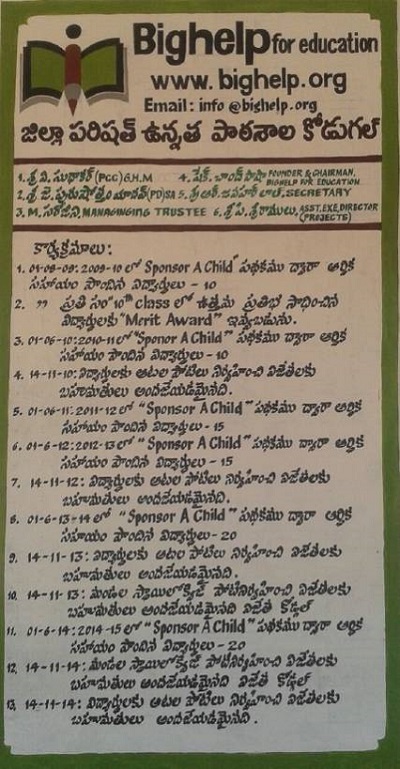 Bighelp for education
www. bighelp.org
Email: info @bighelp.org
జిల్లా పరిషత్ ఉన్నత పాఠశాల కోడుగల్
1. శ్రీ వి. సుధాకర్ (PCC) G.H.M 4. షేక్. చాంద్ పాషా FOUNDER & CHAIRMAN, BIGHELP FOR EDUCATION
2. శ్రీ జె. పురుషోత్తం యాదవ్ (PD) SA 5. శ్రీ ఆర్. జవహర్ లాల్. SECRETARY
3. M. సరోజిని, MANAGINGING TRUSTEE 6. శ్రీ పి. శ్రీరాములు, ASST. EXE, DIRECTOR (PROJECTS)
కార్యక్రమాలు:
1. 01-08-09: 2009-10 లో "Sponsor A Child" పథకము ద్వారా ఆర్థిక
సహాయం పొందిన విద్యార్థులు - 10
2. " ప్రతి సం" 10th class లో ఉత్తమ ప్రతిభ సాధించిన
విద్యార్థులకు "Merit Award" ఇవ్వబడును.
3. 01-06-10: 2010-11 లో "Sponor A Child" పథకము ద్వారా ఆర్థిక
సహాయం పొందిన విద్యార్థులు - 10
4. 14-11-10: విద్యార్థులకు ఆటల పోటీలు నిర్వహించి విజేతలకు
బహుమతులు అందజేయడమైనది.
5. 01-06-11: 2011-12 లో "Sponsor A Child" పథకము ద్వారా ఆర్థిక
సహాయం పొందిన విద్యార్థులు - 15
6. 01-6-12: 2012-13 లో "Sponsor A Child" పథకము ద్వారా ఆర్థిక
సహాయం పొందిన విద్యార్థులు - 15
7. 14-11-12: విద్యార్థులకు ఆటల పోటీలు నిర్వహించి విజేతలకు
బహుమతులు అందజేయడమైనది.
8. 01-6-13-14 లో "Sponsor A Child" పథకము ద్వారా ఆర్థిక
సహాయం పొందిన విద్యార్థులు - 20
9. 14-11-13: విద్యార్థులకు ఆటల పోటీలు నిర్వహించి విజేతలకు
బహుమతులు అందజేయడమైనది.
10. 14-11-13: మండల స్థాయిలో క్విజ్ పోటీ నిర్వహించి విజేతలకు
బహుమతులు అందజేయడమైనది విజేత కోడ్గల్
11. 01-6-14: 2014-15 లో "Sponsor A Child" పథకము ద్వారా ఆర్థిక
సహాయం పొందిన విద్యార్థులు - 20
12. 14-11-14: మండల స్థాయిలో క్విజ్ పోటీ నిర్వహించి విజేతలకు
బహుమతులు అందజేయడమైనది విజేత కోడ్గల్
13. 14-11-14: విద్యార్థులకు ఆటల పోటీలు నిర్వహించి విజేతలకు
బహుమతులు అందజేయడమైనది.